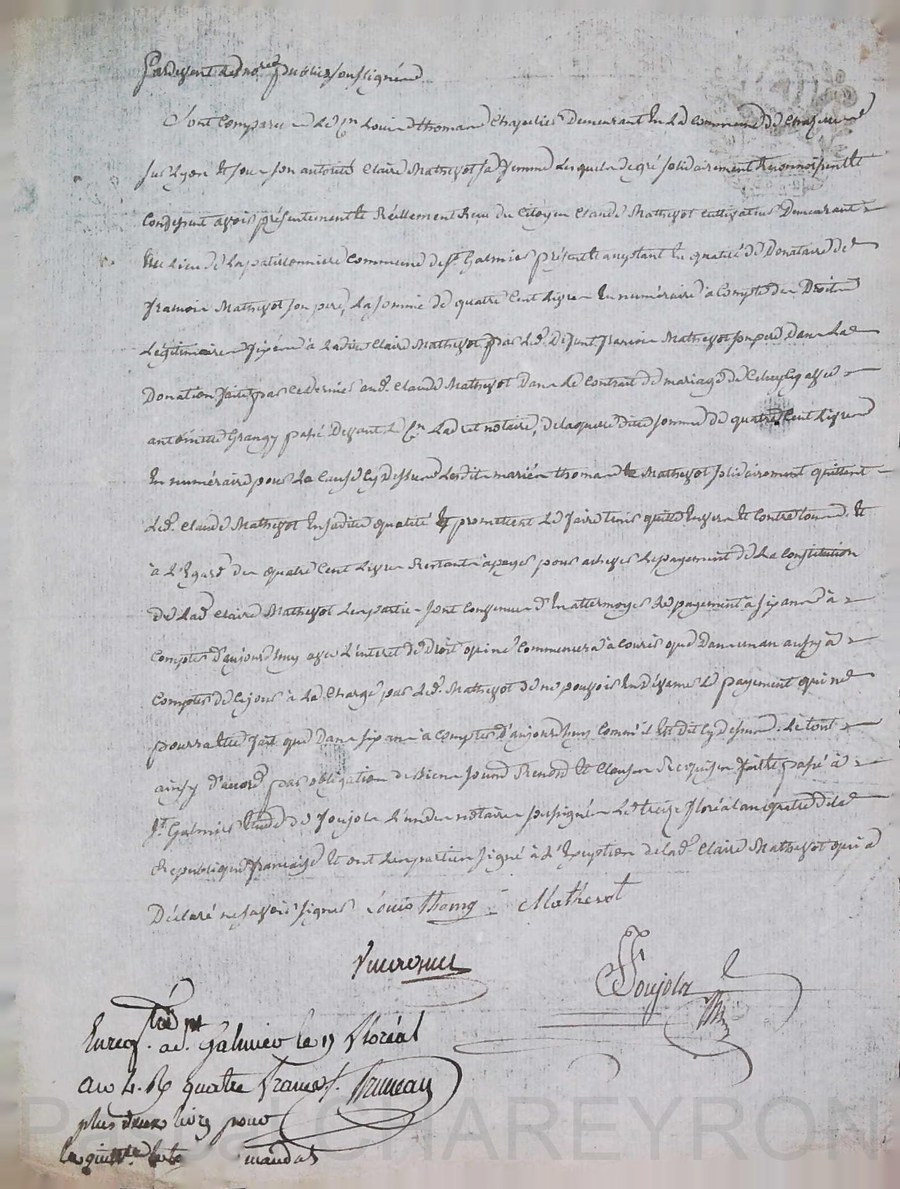 Pardevant les no.res publics soussignés
Sont comparu le C.n Louis thomas Chapelier demeurant en la commune de Chazelles
sur Lyon et sous son autorité Claire Matheyot sa femme lesquels de gré solidairement reconnoissent et
confessent avoir présentement et Réellement Reçu du Citoyen Claude Matheyot cultivateur Demeurant
au Lieu de Commune de S.t Galmier présent et acceptant en qualité de Donataire de
francois Matheyot son pere, La somme de quatre Cent Livres En numéraire à Compte des Droits
Légitimaires fixés à Ladite Claire Matheyot par led. Défunt francois Matheyot son pere Dans La
Donation faite par ce dernier aud. Claude Matheyot Dans le Contrat de mariage de Celuy cy avec
antoinette Grangy passé Devant le C.n notaire, de laquelle dite somme de quatre Cent Livres
En numéraire pour La Cause Cy dessus Lesdits mariés thomas et Matheyot solidairement quittent
Led. Claude Matheyot En sadite qualité et promettent Le faire tenir quitte Envers et Contre tous. Et
à L'Egard des quatre Cent Livres Restant à payer pour achever le payement de La Constitution
de Lad. Claire Matheyot Les parties sont Convenues d'En attermoyer le payement à six ans à
Compter d'aujourdhuy avec L'interet de Droit qui ne Commencera à Courir que Dans un an aussy à
Compter de Ce jour à La Charge par Led. Matheyot de ne pouvoir En le payement qui ne
pourra Etre fait que Dans six ans à Compter D'aujourdhuy Comm'il Est dit Cy dessus. Le tout
ainsy d'accord par obligation de Biens Renonc. et Clauses Requises fait et passé à
S.t Galmier Etude de Soujols L'un des notaires soussignés Le treize floréal an quatre de la
Republique française Et ont Les parties signé à L'Exception de lad. Claire Matheyot qui a
Déclaré ne savoir signer Louis thomas Matherot
Soujols
Enreg.tré à S.t Galmier le 19 floréal
an 4. R quatre francs. Bruneau
plus deux livres pour
mandat
Pascal CHAREYRON